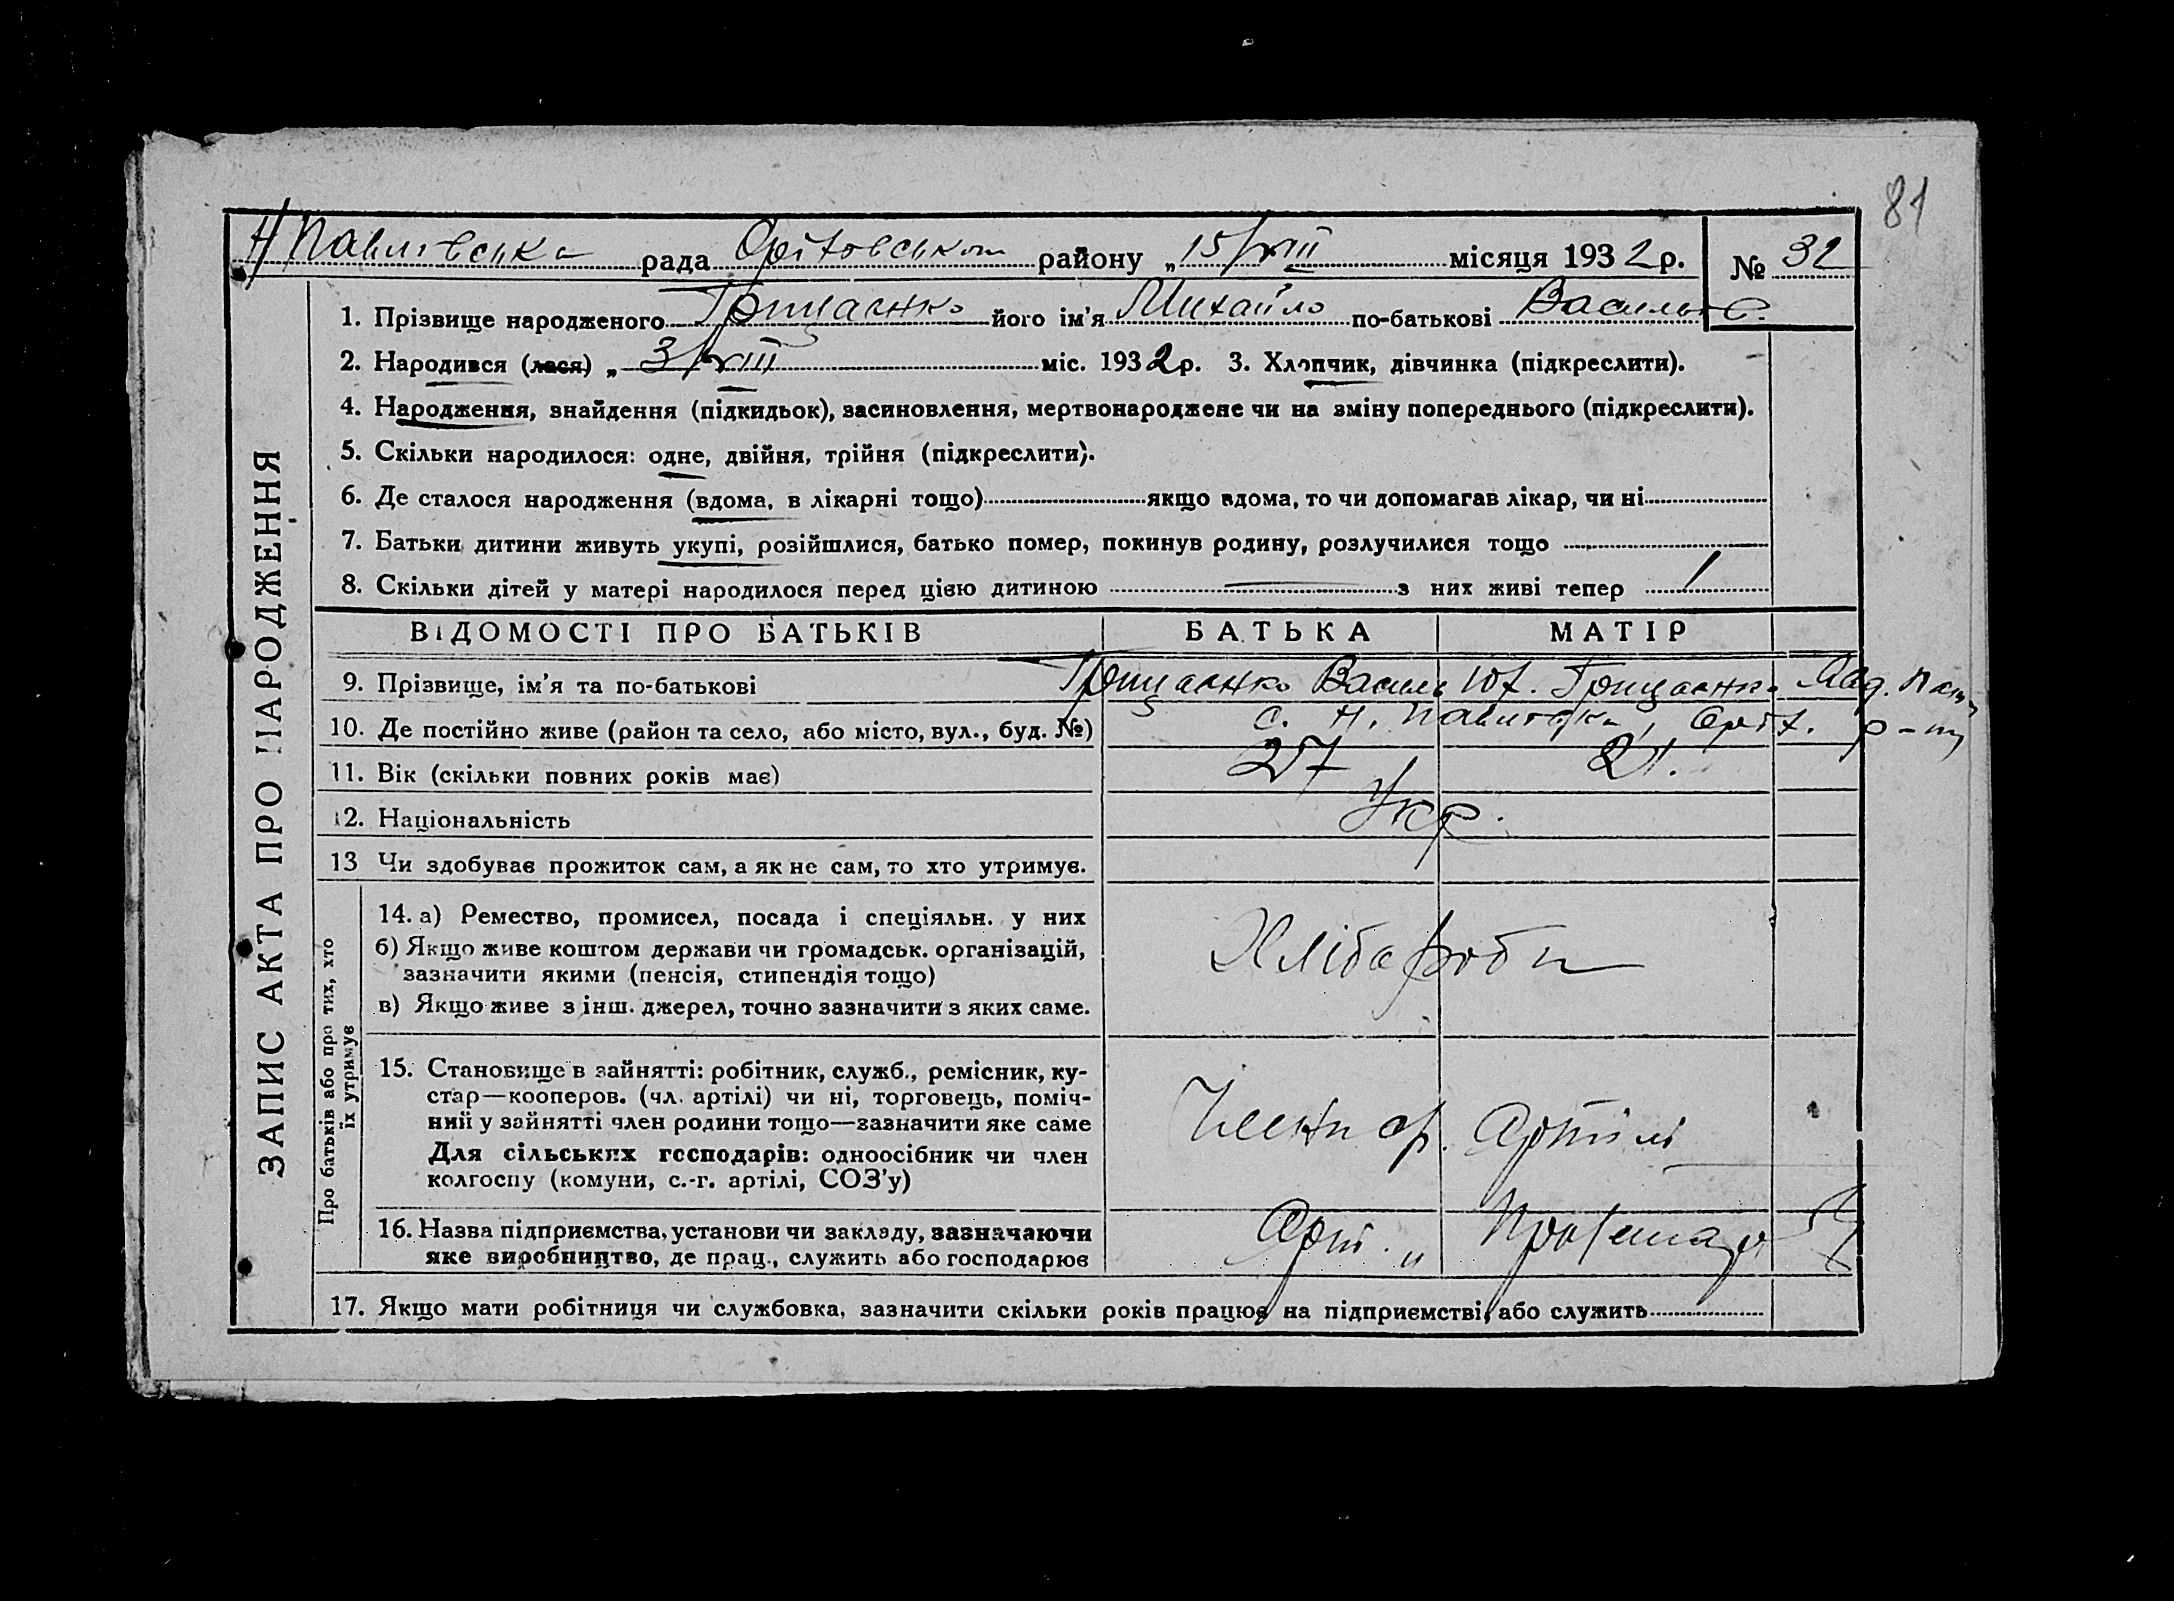 81
Н Павлівська рада Оріховськом району „15/VIII місяця 1932 р. № 32
1. Прізвище народженого Грицаєнко його ім'я Михайло по-батькові Василь
2. Народився (лася) „ 3/VIII міс. 1932 р. 3. Хлопчик, дівчинка (підкреслити).
4. Народження, знайдення (підкидьок), засиновлення, мертвонароджене чи на зміну попереднього (підкреслити).
5. Скільки народилося: одне, двійня, трійня (підкреслити).
6. Де сталося народження (вдома, в лікарні тощо) якщо вдома, то чи допомагав лікар, чи ні
7. Батьки дитини живуть укупі, розійшлися, батько помер, покинув родину, розлучилися тощо
8. Скільки дітей у матері народилося перед цією дитиною — з них живі тепер 1
ЗАПИС АКТА ПРО НАРОДЖЕННЯ
ВІДОМОСТІ ПРО БАТЬКІВ БАТЬКА МАТІР
9. Прізвище, ім'я та по-батькові Грицаєнко Василь Юх. Грицаєнко
10. Де постійно живе (район та село, або місто, вул., буд. №) с. Н. Павлівка, Оріх. р-ну
11. Вік (скільки повних років має) 27 21.
12. Національність Укр.
13 Чи здобуває прожиток сам, а як не сам, то хто утримує.
Про батьків або про тих, хто
їх утримує
14. а) Ремество, промисел, посада і спеціяльн. у них
б) Якщо живе коштом держави чи громадськ. організацій,
зазначити якими (пенсія, стипендія тощо)
в) Якщо живе з інш. джерел, точно зазначити з яких саме.
Хлібороби
15. Становище в зайнятті: робітник, служб., ремісник, ку-
стар—кооперов. (чл. артілі) чи ні, торговець, поміч-
ний у зайнятті член родини тощо—зазначити яке саме
Для сільських господарів: одноосібник чи член
колгоспу (комуни, с.-г. артілі, СОЗ'у)
Члени Артілі
16. Назва підприємства, установи чи закладу, зазначаючи
яке виробництво, де прац., служить або господарює
Арт. „
17. Якщо мати робітниця чи службовка, зазначити скільки років працює на підприємстві, або служить